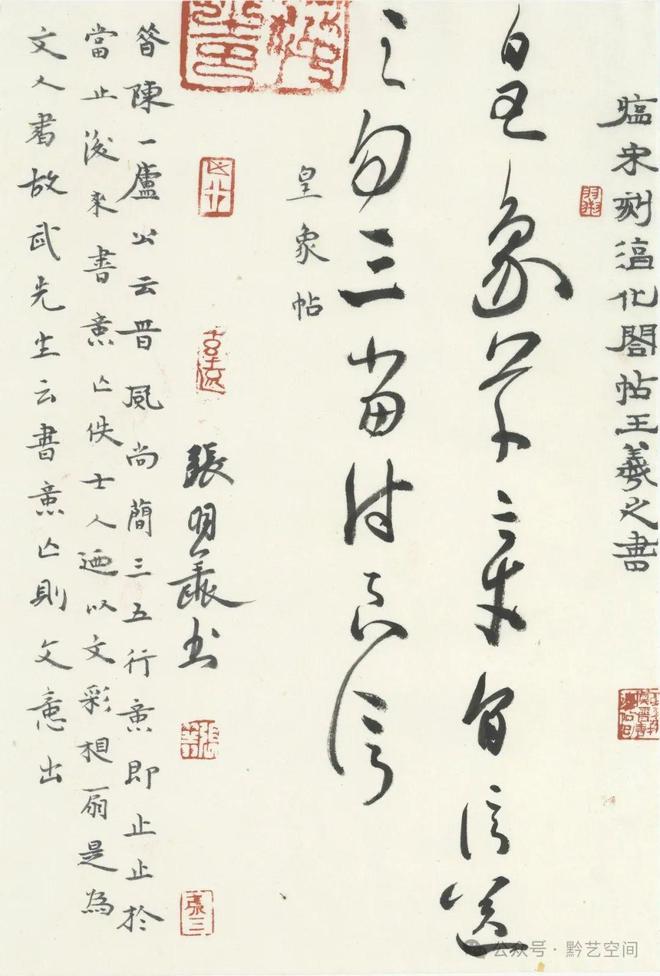 臨宋刻淳化閣帖王羲之書
皇象草章旨信送
之勿三當付良信
皇象帖
張書
昔陳一廬公云晉風尚簡三五行意即止止於
當止後來書意亡佚士人迺以文彩相扇是為
文人書故武先生云書意亡則文意出
張三
公众号·黔艺空间